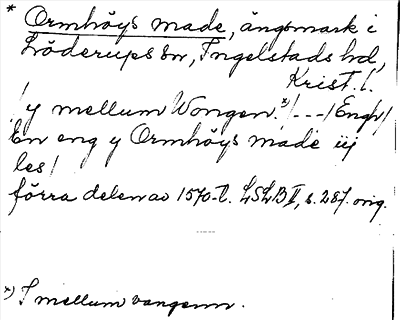 * Ormhöys made, ängsmark i
Löderups sn, Ingelstads hd,
Krist. l.
/ y mellum Wongen. x) / - - - / Engh /
En eng y Ormhöys made iij
les /
förra delen av 1570-t. LSLB II, s. 287. orig.
x) I mellum vangenn.